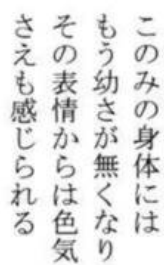 このみの身体には
もう幼さが無くなり
その表情からは色気
さえも感じられる